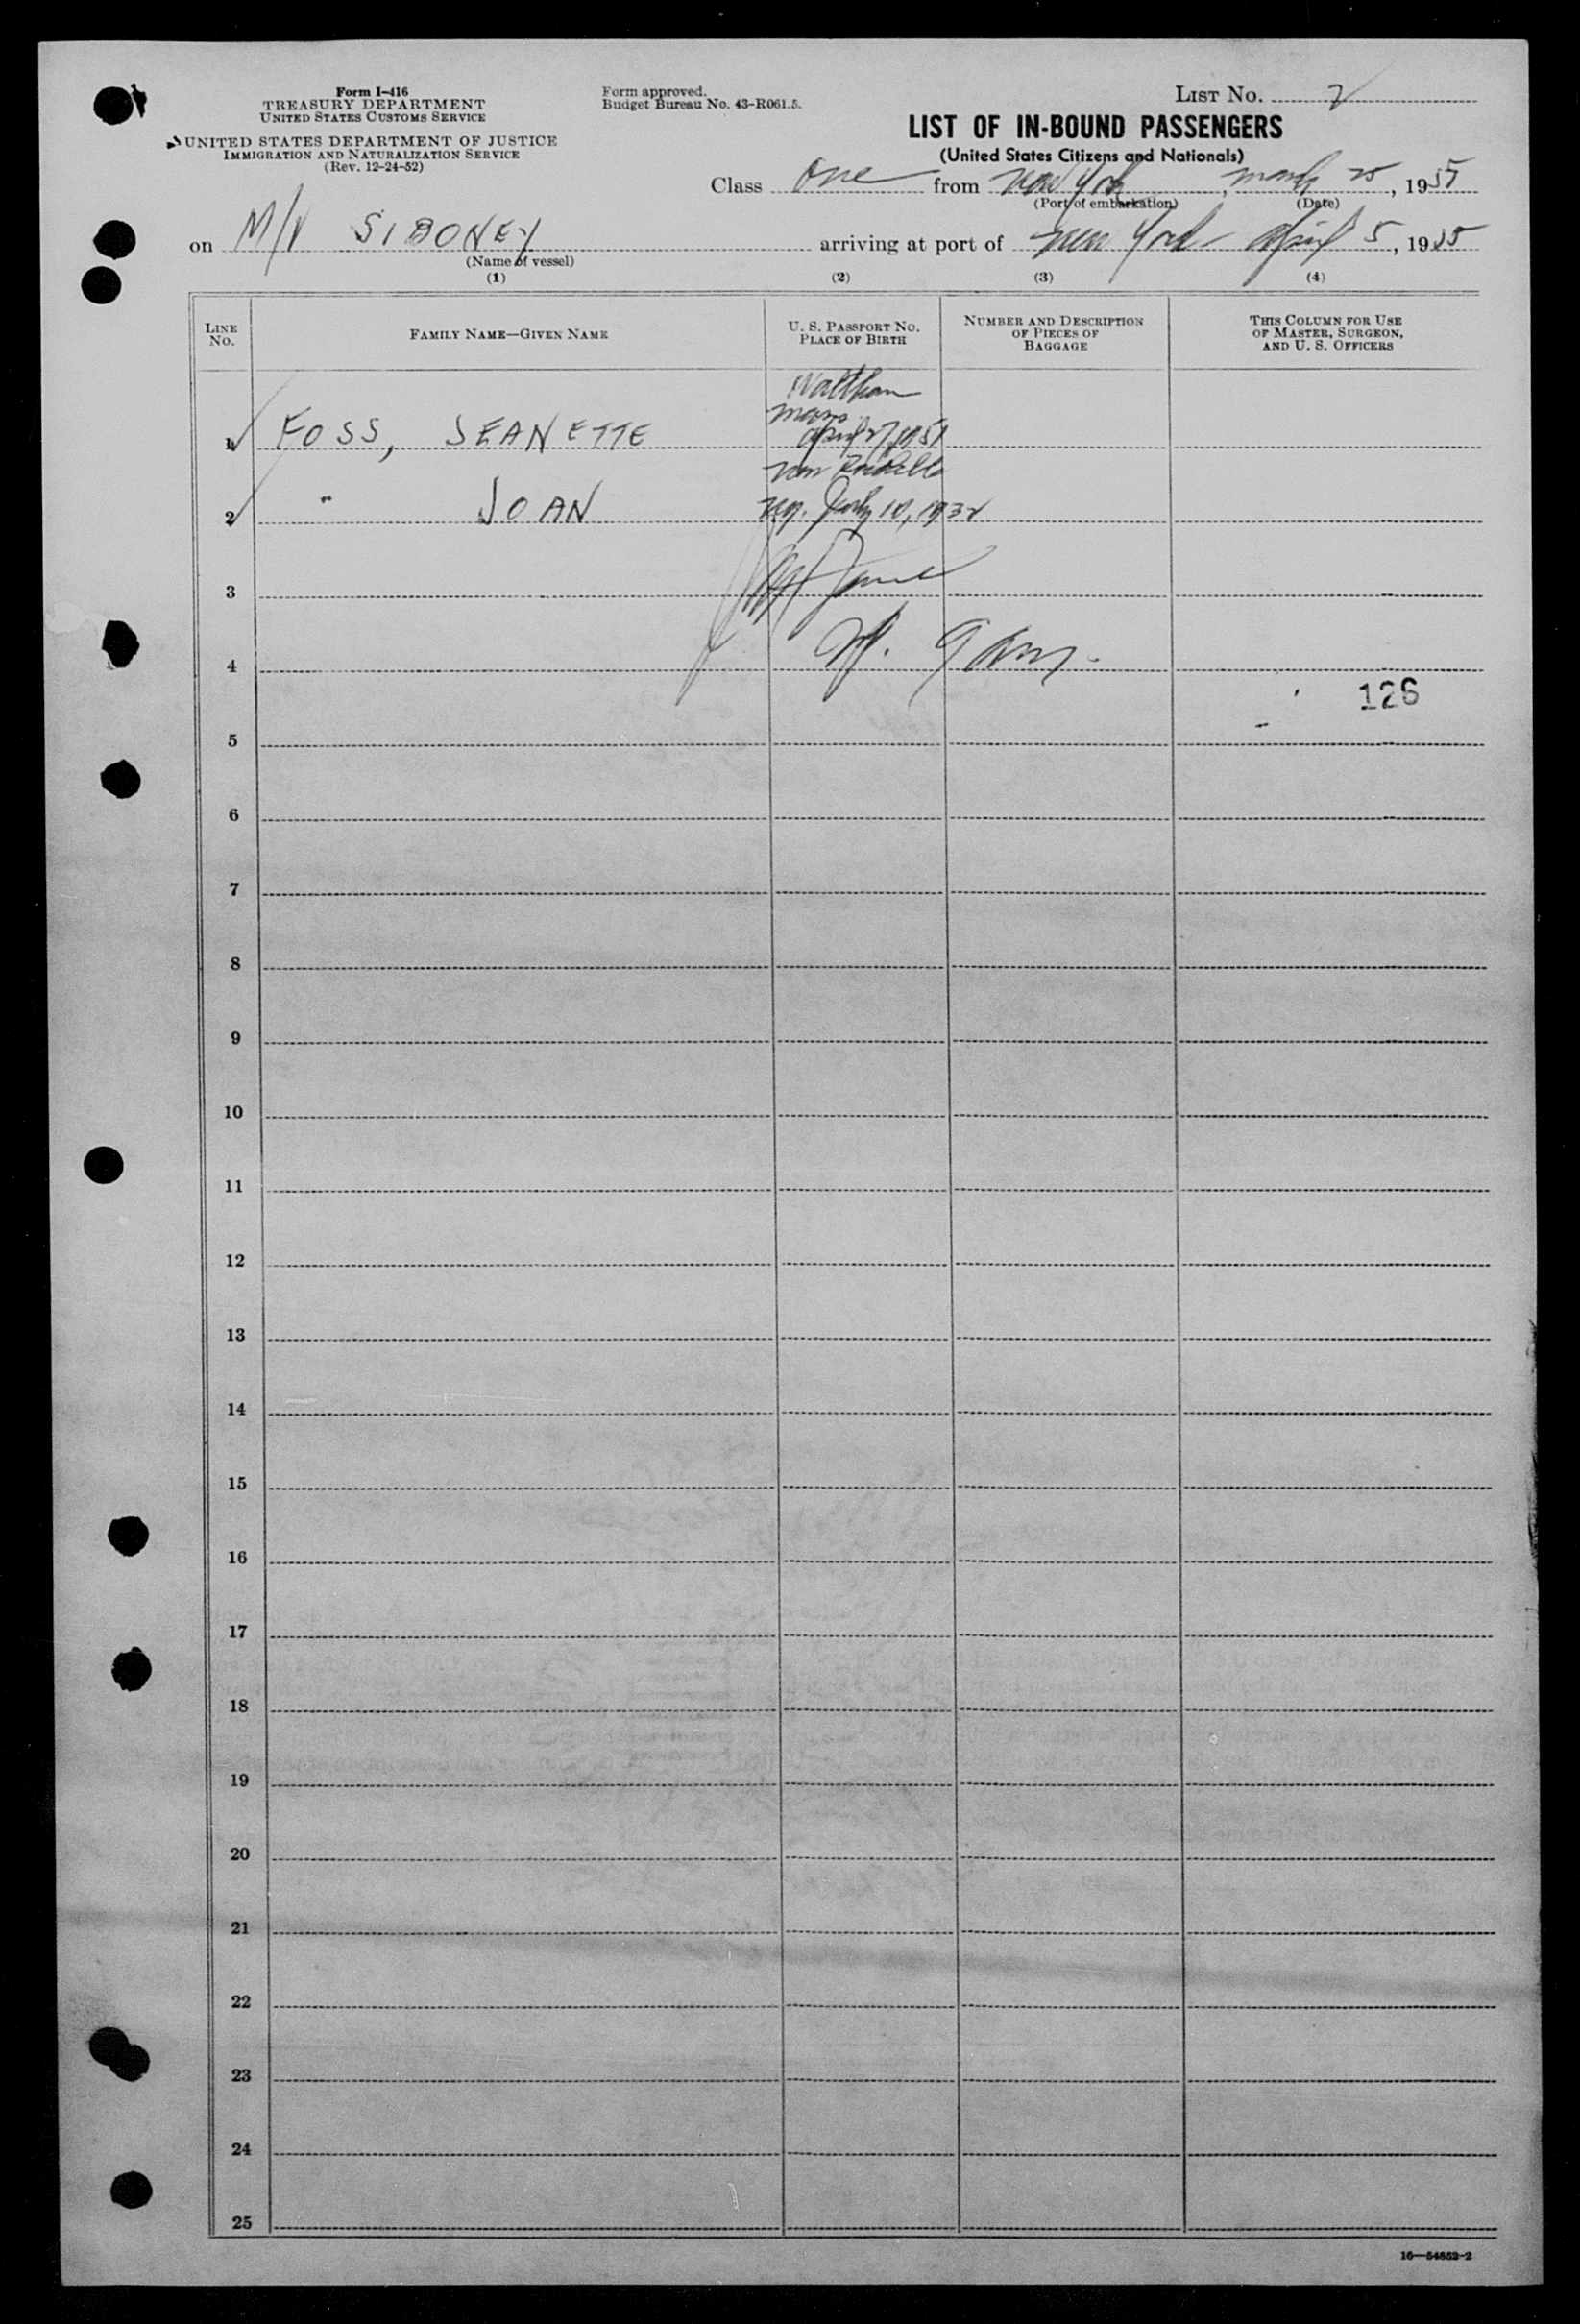 Form I-416
TREASURY DEPARTMENT
UNITED STATES CUSTOMS SERVICE
UNITED STATES DEPARTMENT OF JUSTICE
IMMIGRATION AND NATURALIZATION SERVICE
(Rev. 12-24-52)
Form approved.
Budget Bureau No. 43-R061.5.
LIST NO. 2
LIST OF IN-BOUND PASSENGERS
(United States Citizens and Nationals)
Class one from New York, march 25, 1955
(Port of embarkation) (Date)
on M/V SIBONEY arriving at port of New York april 5, 1955
(Name of vessel)
(1) (2) (3) (4)
LINE NO.
FAMILY NAME—GIVEN NAME
U. S. PASSPORT NO.
PLACE OF BIRTH
NUMBER AND DESCRIPTION
OF PIECES OF
BAGGAGE
THIS COLUMN FOR USE
OF MASTER, SURGEON,
AND U. S. OFFICERS
Waltham
mass
1 FOSS, JEANETTE april 27, 1951
New Rochelle
2 " JOAN July 10, 1932
3
4
126
5
6
7
8
9
10
11
12
13
14
15
16
17
18
19
20
21
22
23
24
25
16—54852-2